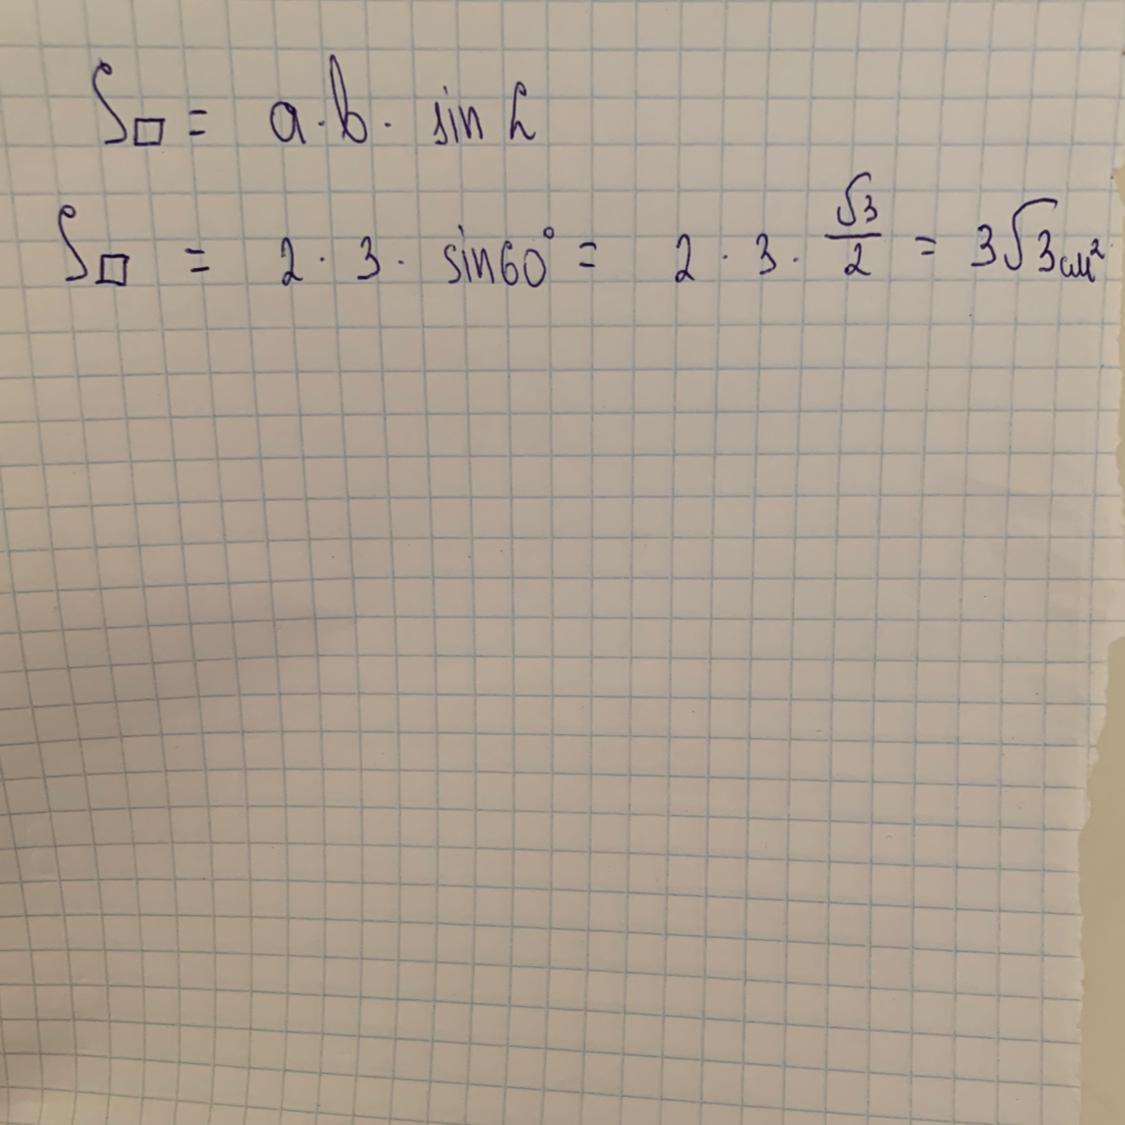 S□ = a·b· sin α
S□ = 2·3· sin60° = 2·3·√3/2 = 3√3см²